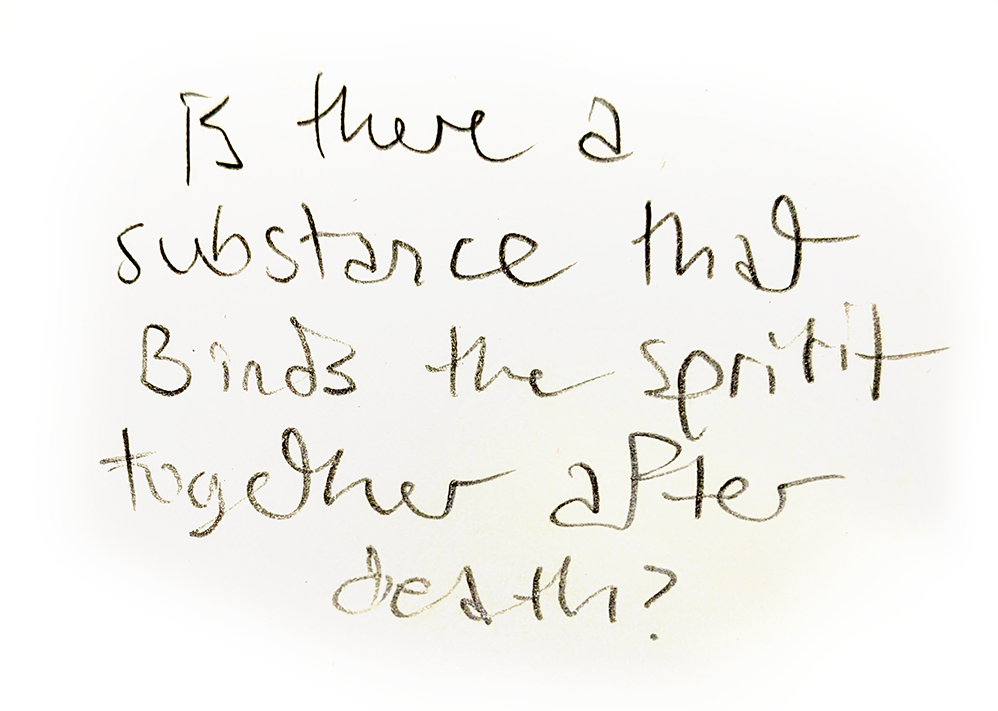 is there a
substance that
Binds the spritit
together after
death?